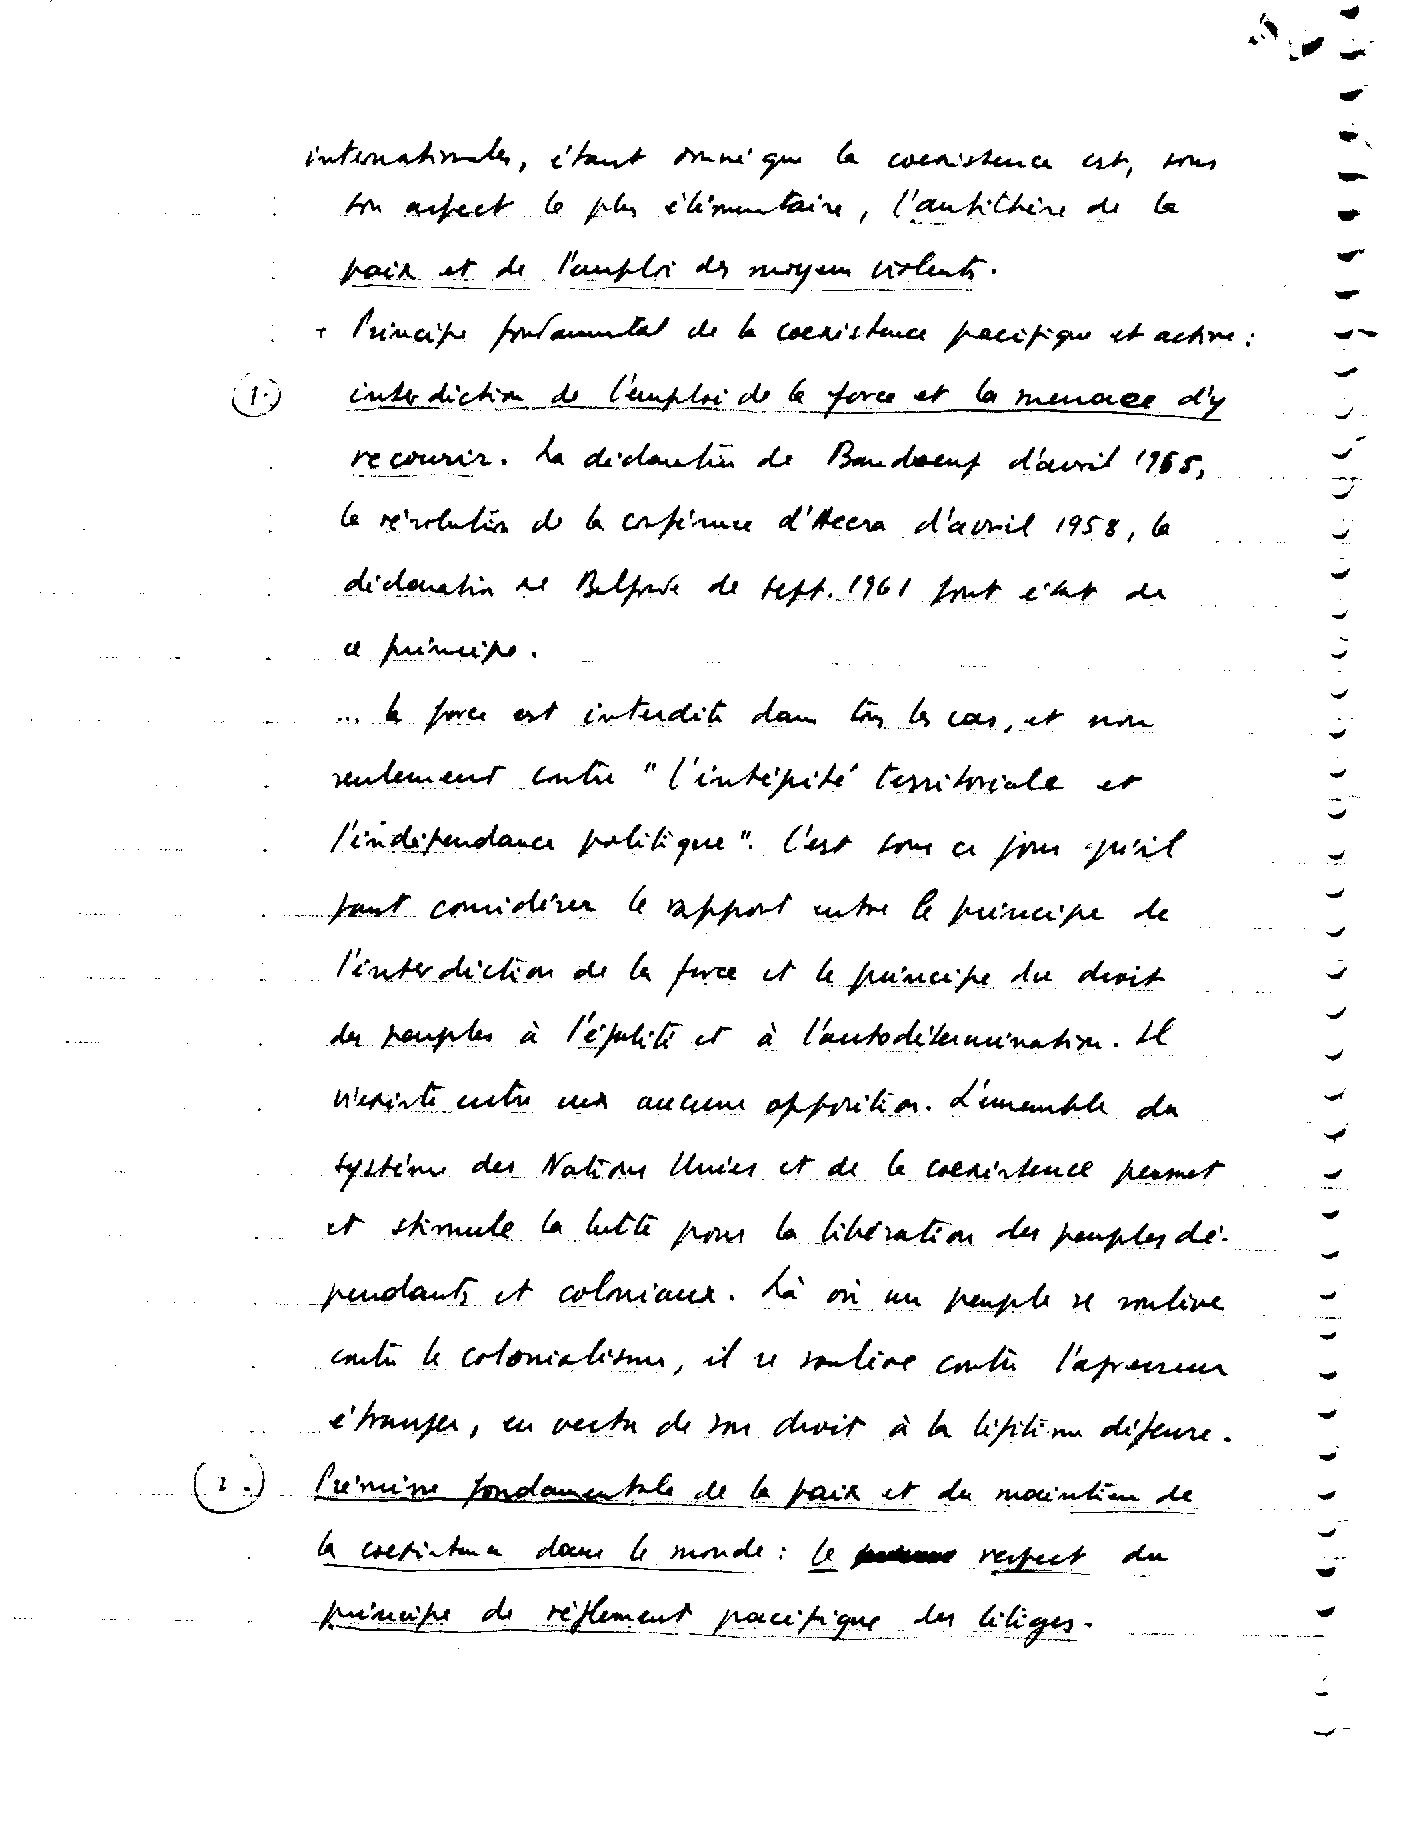 internationales, étant donné que la coexistence est, sous
son aspect le plus élémentaire, l'antithèse de la
paix et de l'emploi des moyens violents.
+ Principe fondamental de la coexistence pacifique et active :
1. interdiction de l'emploi de la force et la menace d'y
recourir. La déclaration de Bandoeng d'avril 1955,
la résolution de la conférence d'Accra d'avril 1958, la
déclaration de Belgrade de sept. 1961 font état de
ce principe.
... la force est interdite dans tous les cas, et non
seulement contre "l'intégrité territoriale et
l'indépendance politique". C'est sous ce jour qu'il
faut considérer le rapport entre le principe de
l'interdiction de la force et le principe du droit
des peuples à l'égalité et à l'autodétermination. Il
n'existe entre eux aucune opposition. L'ensemble du
système des Nations Unies et de la coexistence permet
et stimule la lutte pour la libération des peuples dé-
pendants et coloniaux. Là où un peuple se soulève
contre le colonialisme, il se soulève contre l'agresseur
étranger, en vertu de son droit à la légitime défense.
2. Prémisse fondamentale de la paix et du maintien de
la coexistence dans le monde : le respect du
principe de règlement pacifique des litiges.